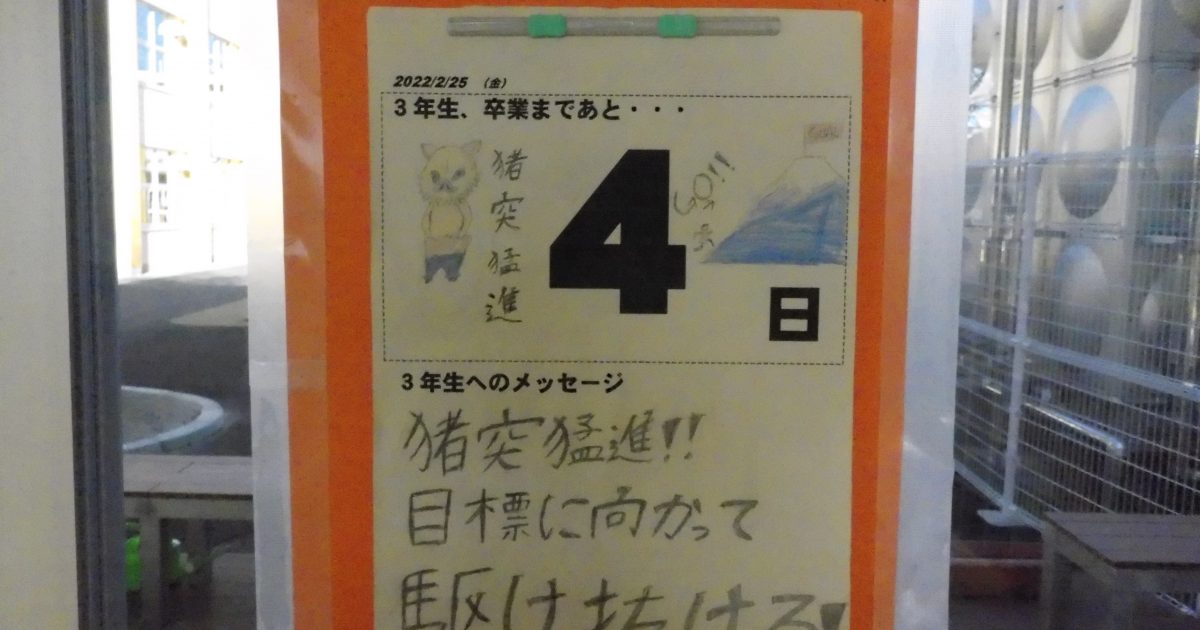 2022/2/25 （金）
3年生、卒業まであと・・・
猪突猛進
4
GO!!
GOAL
日
3年生へのメッセージ
猪突猛進!!
目標に向かって
駆け抜ける!